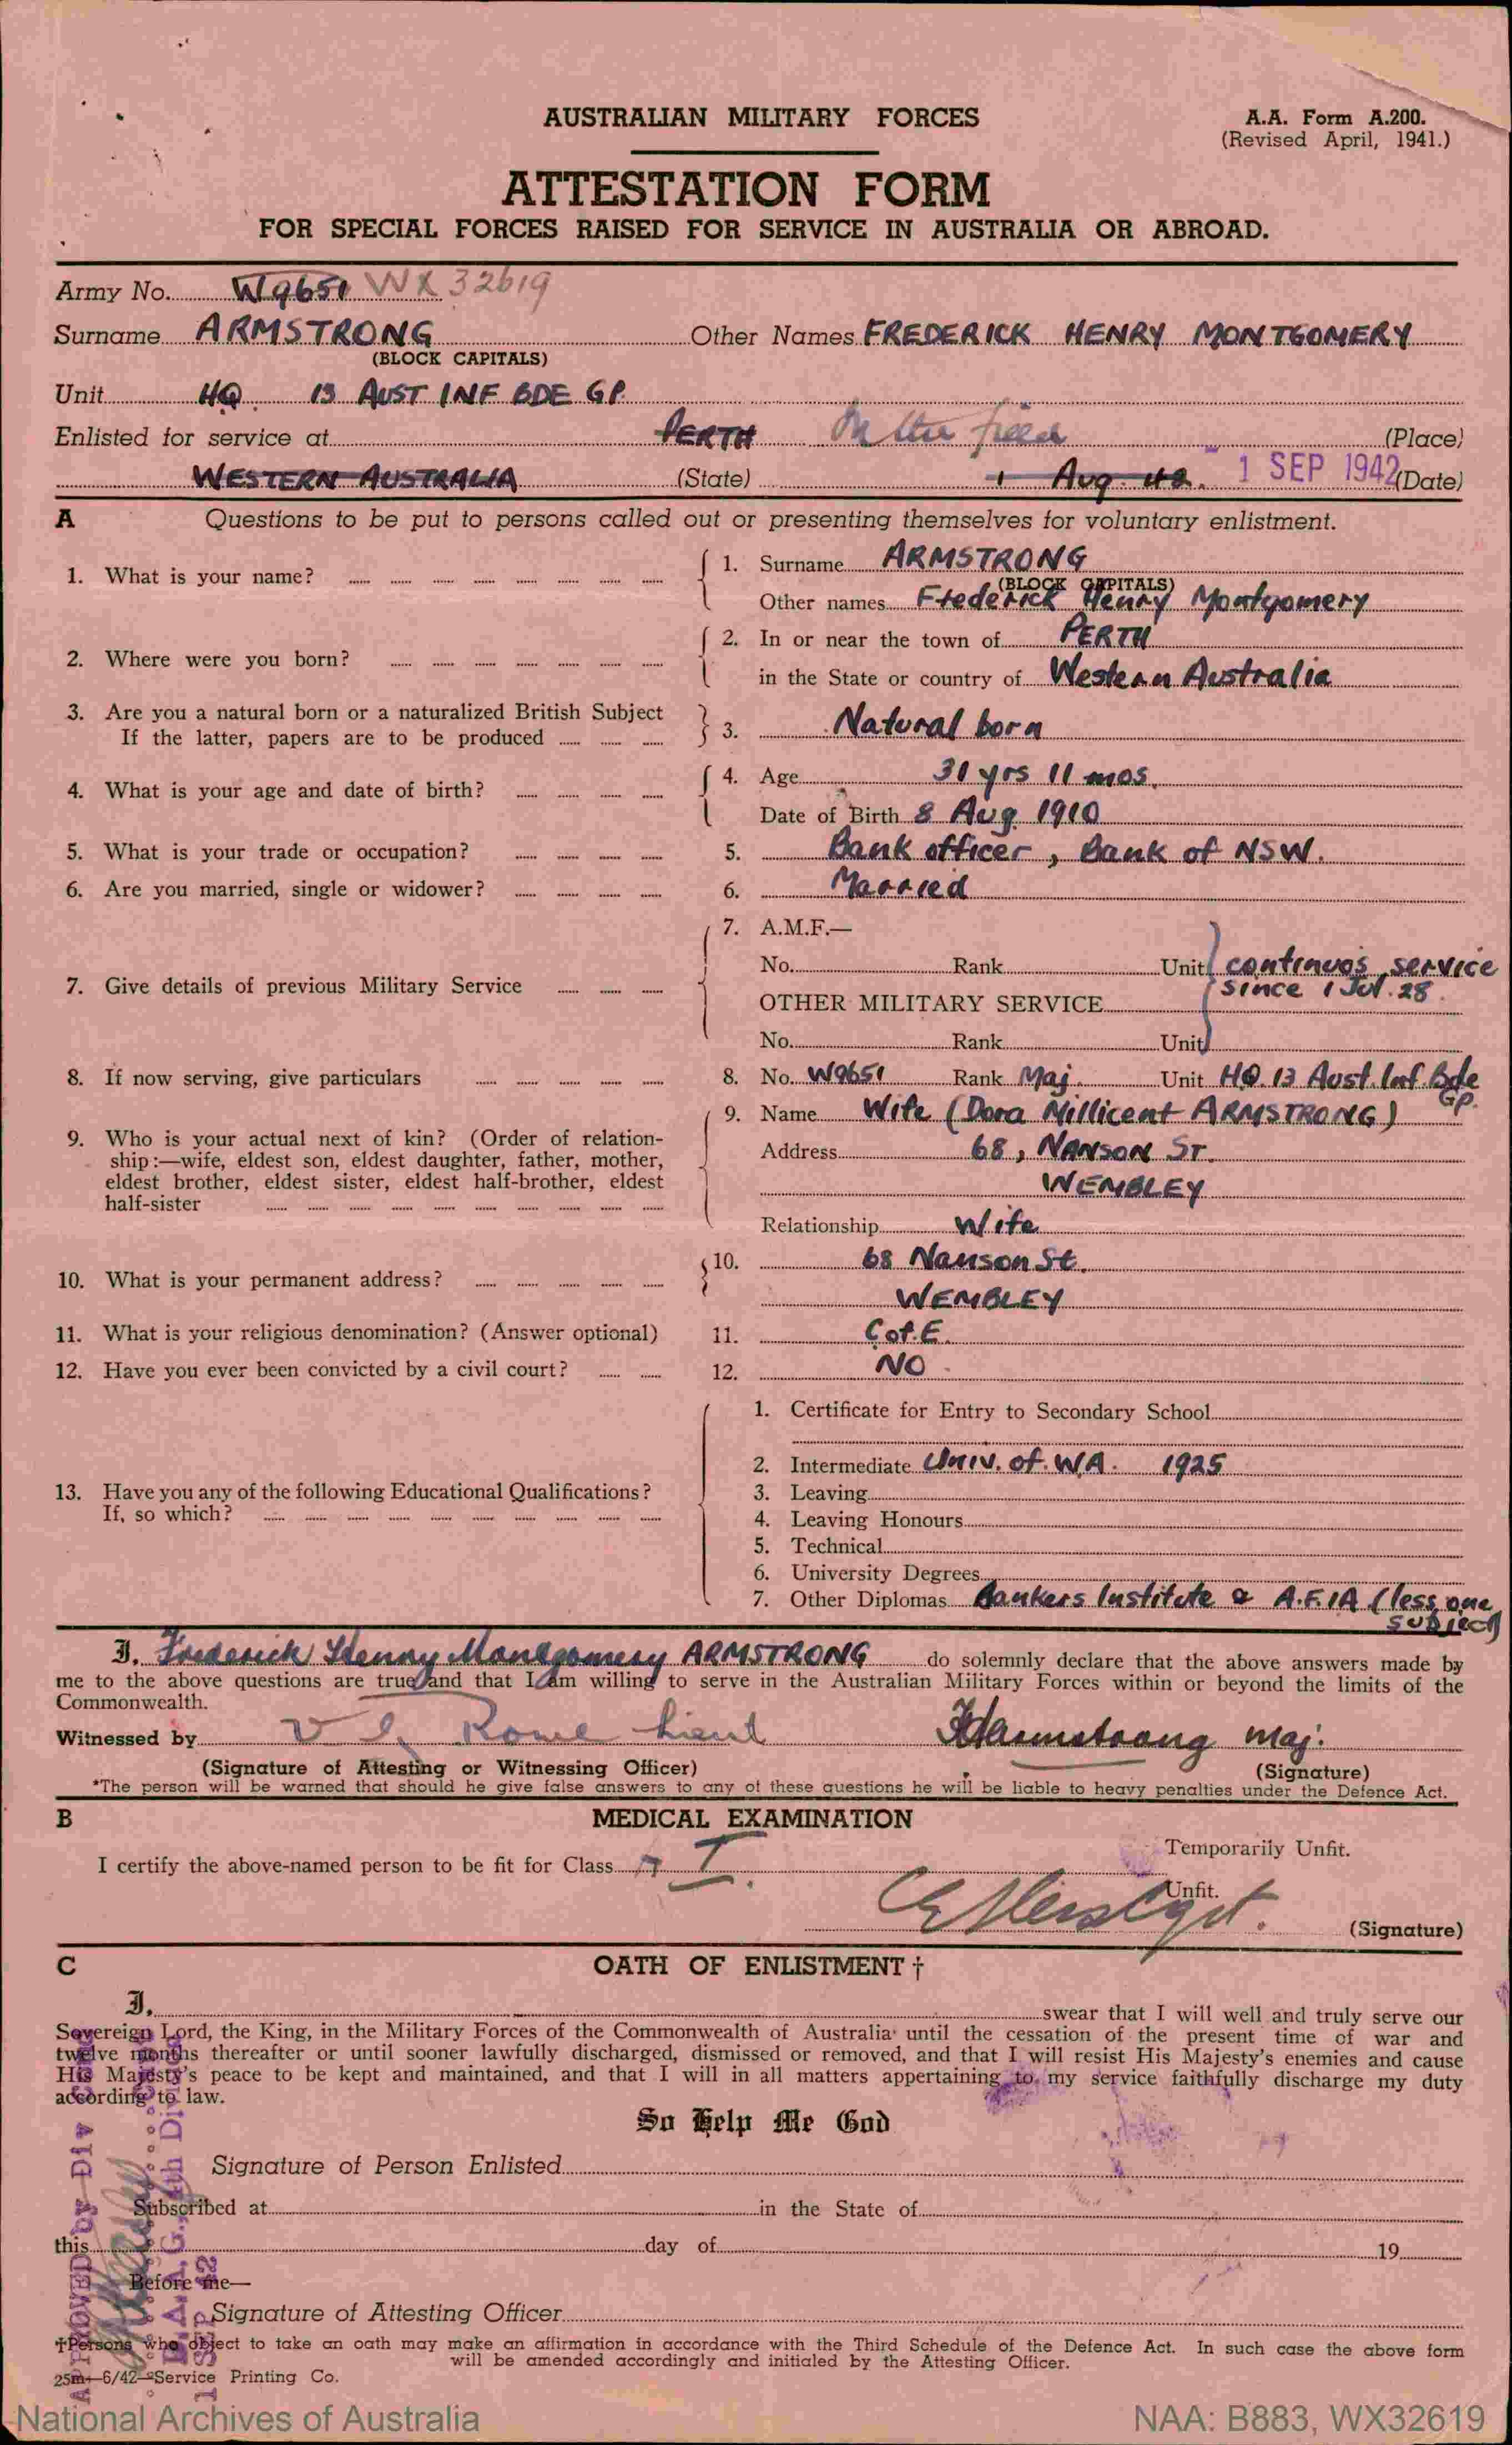 AUSTRALIAN MILITARY FORCES
A.A. Form A.200.
(Revised April, 1941.)
ATTESTATION FORM
FOR SPECIAL FORCES RAISED FOR SERVICE IN AUSTRALIA OR ABROAD.
Army No. W9651 WX 32619
Surname ARMSTRONG Other Names FREDERICK HENRY MONTGOMERY
(BLOCK CAPITALS)
Unit HQ. 13 AUST INF BDE GP.
Enlisted for service at PERTH In the field (Place)
WESTERN AUSTRALIA (State) 1 Aug. 42. - 1 SEP 1942 (Date)
A Questions to be put to persons called out or presenting themselves for voluntary enlistment.
1. What is your name? 1. Surname ARMSTRONG
(BLOCK CAPITALS)
Other names Frederick Henry Montgomery
2. Where were you born? 2. In or near the town of PERTH
in the State or country of Western Australia
3. Are you a natural born or a naturalized British Subject
If the latter, papers are to be produced 3. Natural born
4. What is your age and date of birth? 4. Age 31 yrs 11 mos.
Date of Birth 8 Aug 1910
5. What is your trade or occupation? 5. Bank officer, Bank of NSW.
6. Are you married, single or widower? 6. Married
7. Give details of previous Military Service 7. A.M.F.—
No. Rank Unit continuos service
since 1 Jul. 28.
OTHER MILITARY SERVICE
No. Rank Unit
8. If now serving, give particulars 8. No. W9651 Rank Maj. Unit HQ. 13 Aust. Inf. Bde
GP.
9. Who is your actual next of kin? (Order of relation-
ship:—wife, eldest son, eldest daughter, father, mother,
eldest brother, eldest sister, eldest half-brother, eldest
half-sister
9. Name Wife (Dora Millicent ARMSTRONG)
Address 68, NANSON ST.
WEMBLEY
Relationship Wife
10. What is your permanent address? 10. 68 Nanson St.
WEMBLEY
11. What is your religious denomination? (Answer optional) 11. C of. E.
12. Have you ever been convicted by a civil court? 12. NO.
13. Have you any of the following Educational Qualifications?
If, so which?
1. Certificate for Entry to Secondary School
2. Intermediate Univ. of. W.A. 1925
3. Leaving
4. Leaving Honours
5. Technical
6. University Degrees
7. Other Diplomas Bankers Institute & A.F.IA (less one
subject)
I, Frederick Henry Montgomery ARMSTRONG do solemnly declare that the above answers made by
me to the above questions are true and that I am willing to serve in the Australian Military Forces within or beyond the limits of the
Commonwealth.
Witnessed by Rowe Lieut Armstrong Maj.
(Signature of Attesting or Witnessing Officer) (Signature)
*The person will be warned that should he give false answers to any of these questions he will be liable to heavy penalties under the Defence Act.
B MEDICAL EXAMINATION
Temporarily Unfit.
I certify the above-named person to be fit for Class I.
Unfit.
(Signature)
C OATH OF ENLISTMENT †
I, swear that I will well and truly serve our
Sovereign Lord, the King, in the Military Forces of the Commonwealth of Australia until the cessation of the present time of war and
twelve months thereafter or until sooner lawfully discharged, dismissed or removed, and that I will resist His Majesty's enemies and cause
His Majesty's peace to be kept and maintained, and that I will in all matters appertaining to my service faithfully discharge my duty
according to law.
So Help Me God
Signature of Person Enlisted
Subscribed at in the State of
this day of 19
Before me—
Signature of Attesting Officer
†Persons who object to take an oath may make an affirmation in accordance with the Third Schedule of the Defence Act. In such case the above form
will be amended accordingly and initialed by the Attesting Officer.
25m—6/42—Service Printing Co.
APPROVED by Div
National Archives of Australia
NAA: B883, WX32619